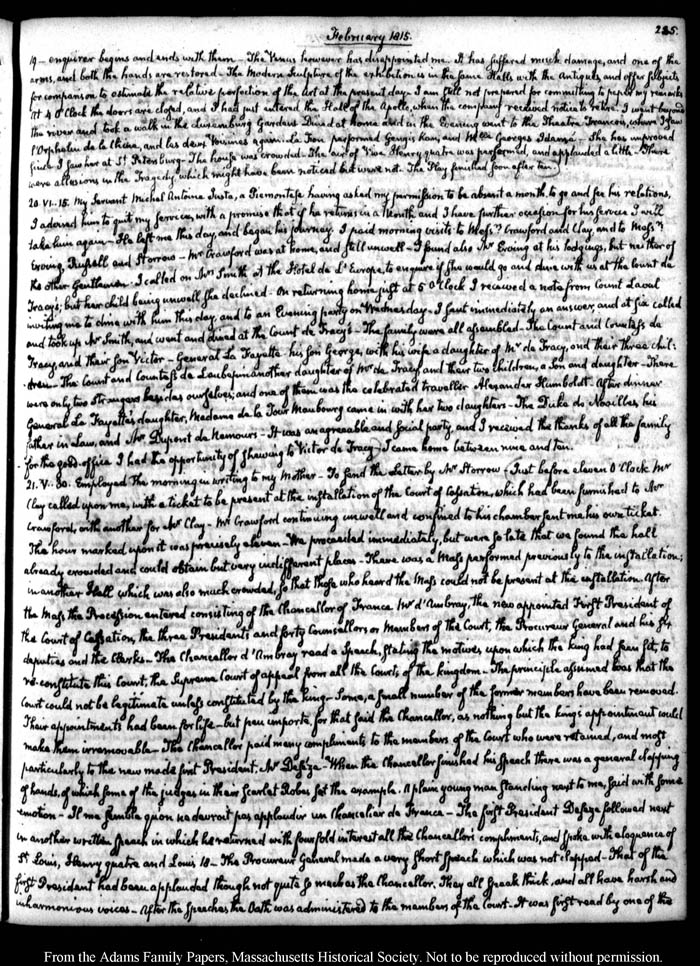 February 1815.
225.
19 — enquirer begins and ends with them — The Venus however has disappointed me. It has suffered much damage, and one of the
arms, and both the hands are restored — The Modern Sculpture of the exhibition is in the same Halls with the Antiques, and offer subjects
for comparison to estimate the relative perfection of the Art at the present day — I am still not prepared for committing to paper my remarks
At 4 O'Clock the doors are closed, and I had just entered the Hall of the Apollo, when the company received notice to retire. I went beyond
the river and took a walk in the Luxemburg Gardens. Dined at home and in the Evening went to the Theatre Francois, where I saw
l'Orphelin de la Chine, and les deux Cousines again. La Fon performed Gengis Kan, and Mlle. Georges Idamé — She has improved
since I saw her at St. Petersburg — The house was crowded — The air of Vive Henry quatre was performed, and applauded a little — There
were allusions in the Tragedy which might have been noticed but were not. The Play finished soon after ten.
20. VI. 15. My Servant Michel Antoine Insta, a Piemontese having asked my permission to be absent a month, to go and see his relations,
I advised him to quit my service, with a promise that if he returns in a Month and I have further occasion for his service I will
take him again — He left me this day, and began his journey. I paid morning visits to Messrs. Crawford and Clay, and to Messrs.
Erving, Russell and Storrow — Mr Crawford was at home, and still unwell — I found also Mr Erving at his lodgings, but neither of
the other Gentlemen. I called on Mrs. Smith at the Hotel de l'Europe, to enquire if she would go and dine with us at the Count de
Tracy's; but her child being unwell she declined — On returning home just at 5 O'Clock I received a note from Count Laval
inviting me to dine with him this day, and to an Evening party on Wednesday — I sent immediately an answer, and at six called
and took up Mr Smith, and went and dined at the Count de Tracy's — The family were all assembled — The Count and Countess de
Tracy, and their Son Victor — General La Fayette — his son George, with his wife a daughter of Mr de Tracy, and their three chil:
dren — The Count and Countess de Laubepin another daughter of Mr de Tracy and their two children, a Son and daughter — There
were only two strangers besides ourselves; and one of them was the celebrated traveller Alexander Humboldt. After dinner
General La Fayette's daughter, Madame de la Tour Maubourg came in with her two daughters — The Duke de Noailles, his
father in Law, and Mr Dupont de Nemours — It was an agreeable and social party, and I received the thanks of all the family
for the good office I had the opportunity of shewing to Victor de Tracy. I came home between nine and ten.
21. V. 30. Employed the morning in writing to my Mother — To send the Letter by Mr Storrow — Just before eleven O'Clock Mr
Clay called upon me, with a ticket to be present at the installation of the Court of Cassation, which had been furnished to Mr
Crawford, with another for Mr Clay — Mr Crawford continuing unwell and confined to his chamber sent me his own ticket.
The hour marked upon it was precisely eleven — We proceeded immediately, but were so late that we found the hall
already crowded and could obtain but very indifferent places — There was a Mass performed previously to the installation;
in another Hall which was also much crowded, so that those who heard the Mass could not be present at the installation. After
the Mass the Procession entered consisting of the Chancellor of France Mr d'Ambray, the new appointed First President of
the Court of Cassation, the three Presidents and forty Counsellors or Members of the Court, the Procureur General and his six
deputies and the Clerks — The Chancellor d'Ambray read a Speech, stating the motives upon which the king had seen fit, to
re-constitute this Court, the Supreme Court of appeal from all the Courts of the kingdom — The principle assumed was that the
Court could not be legitimate unless constituted by the king — Some, a small number of the former members have been removed.
Their appointments had been for life — but peu importe, for that said the Chancellor, as nothing but the king's appointment could
make them irremovable — The Chancellor paid many compliments to the members of the Court who were retained, and most
particularly to the new made first President, Mr Deseze — When the Chancellor finished his Speech there was a general clapping
of hands, of which some of the judges in their Scarlet Robes set the example. A plain young man standing next to me, said with some
emotion — Il me semble qu'on ne devroit pas applaudir un Chancelier de France — The first President Deseze followed next
in another written Speech in which he returned with fourfold interest all the Chancellor's compliments, and spoke with eloquence of
St Louis, Henry quatre and Louis 18 — The Procureur General made a very short Speech which was not clapped — That of the
first President had been applauded though not quite so much as the Chancellor. They all speak thick, and all have harsh and
inharmonious voices — After the Speeches the Oath was administered to the members of the Court — It was first read by one of the
From the Adams Family Papers, Massachusetts Historical Society. Not to be reproduced without permission.